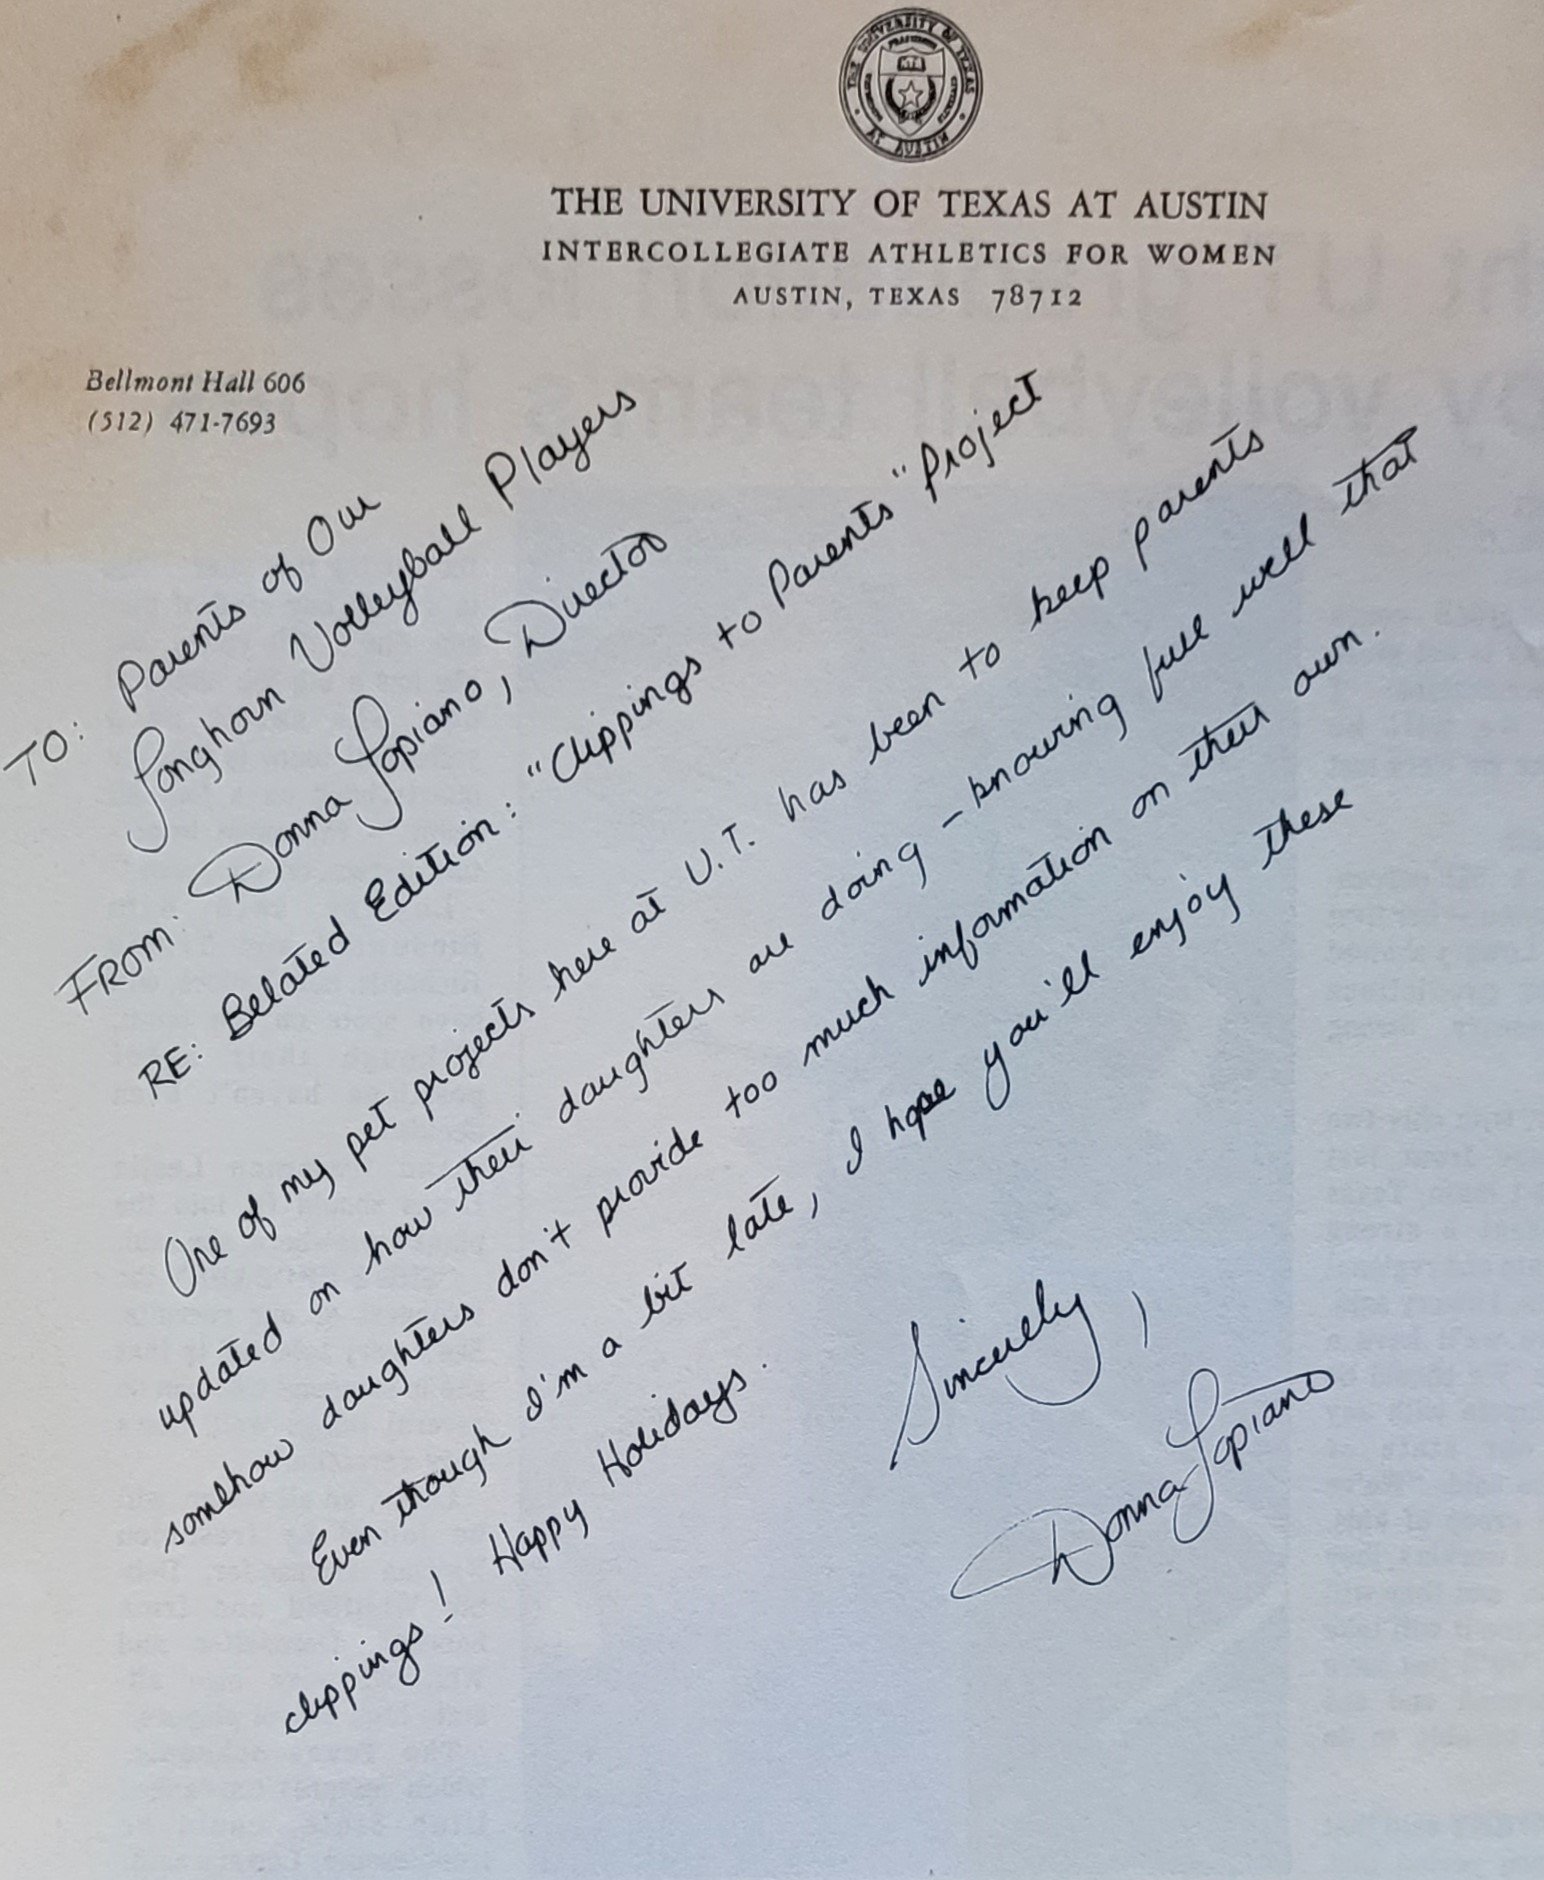 THE UNIVERSITY OF TEXAS
AT AUSTIN
THE UNIVERSITY OF TEXAS AT AUSTIN
INTERCOLLEGIATE ATHLETICS FOR WOMEN
AUSTIN, TEXAS 78712
Bellmont Hall 606
(512) 471-7693
TO: Parents of Our
Longhorn Volleyball Players
FROM: Donna Lopiano, Director
RE: Belated Edition: "Clippings to Parents" Project
One of my pet projects here at U.T. has been to keep parents
updated on how their daughters are doing - knowing full well that
somehow daughters don't provide too much information on their own.
Even though I'm a bit late, I hope you'll enjoy these
clippings! Happy Holidays.
Sincerely,
Donna Lopiano